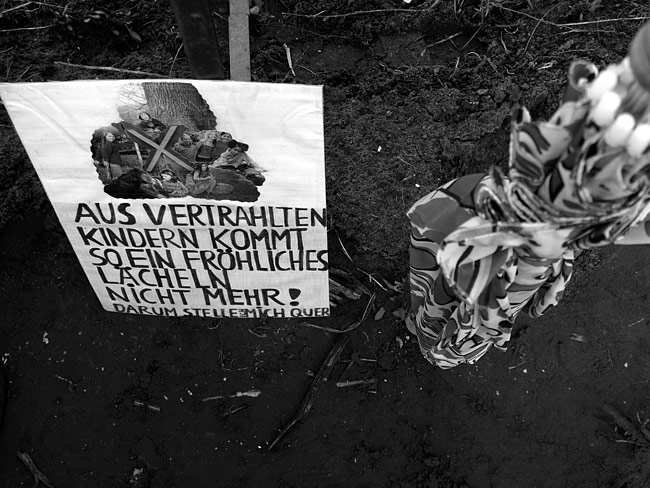 AUS VERTRAHLTEN
KINDERN KOMMT
SO EIN FRÖHLICHES
LÄCHELN
NICHT MEHR!
DARUM STELLE ICH MICH QUER